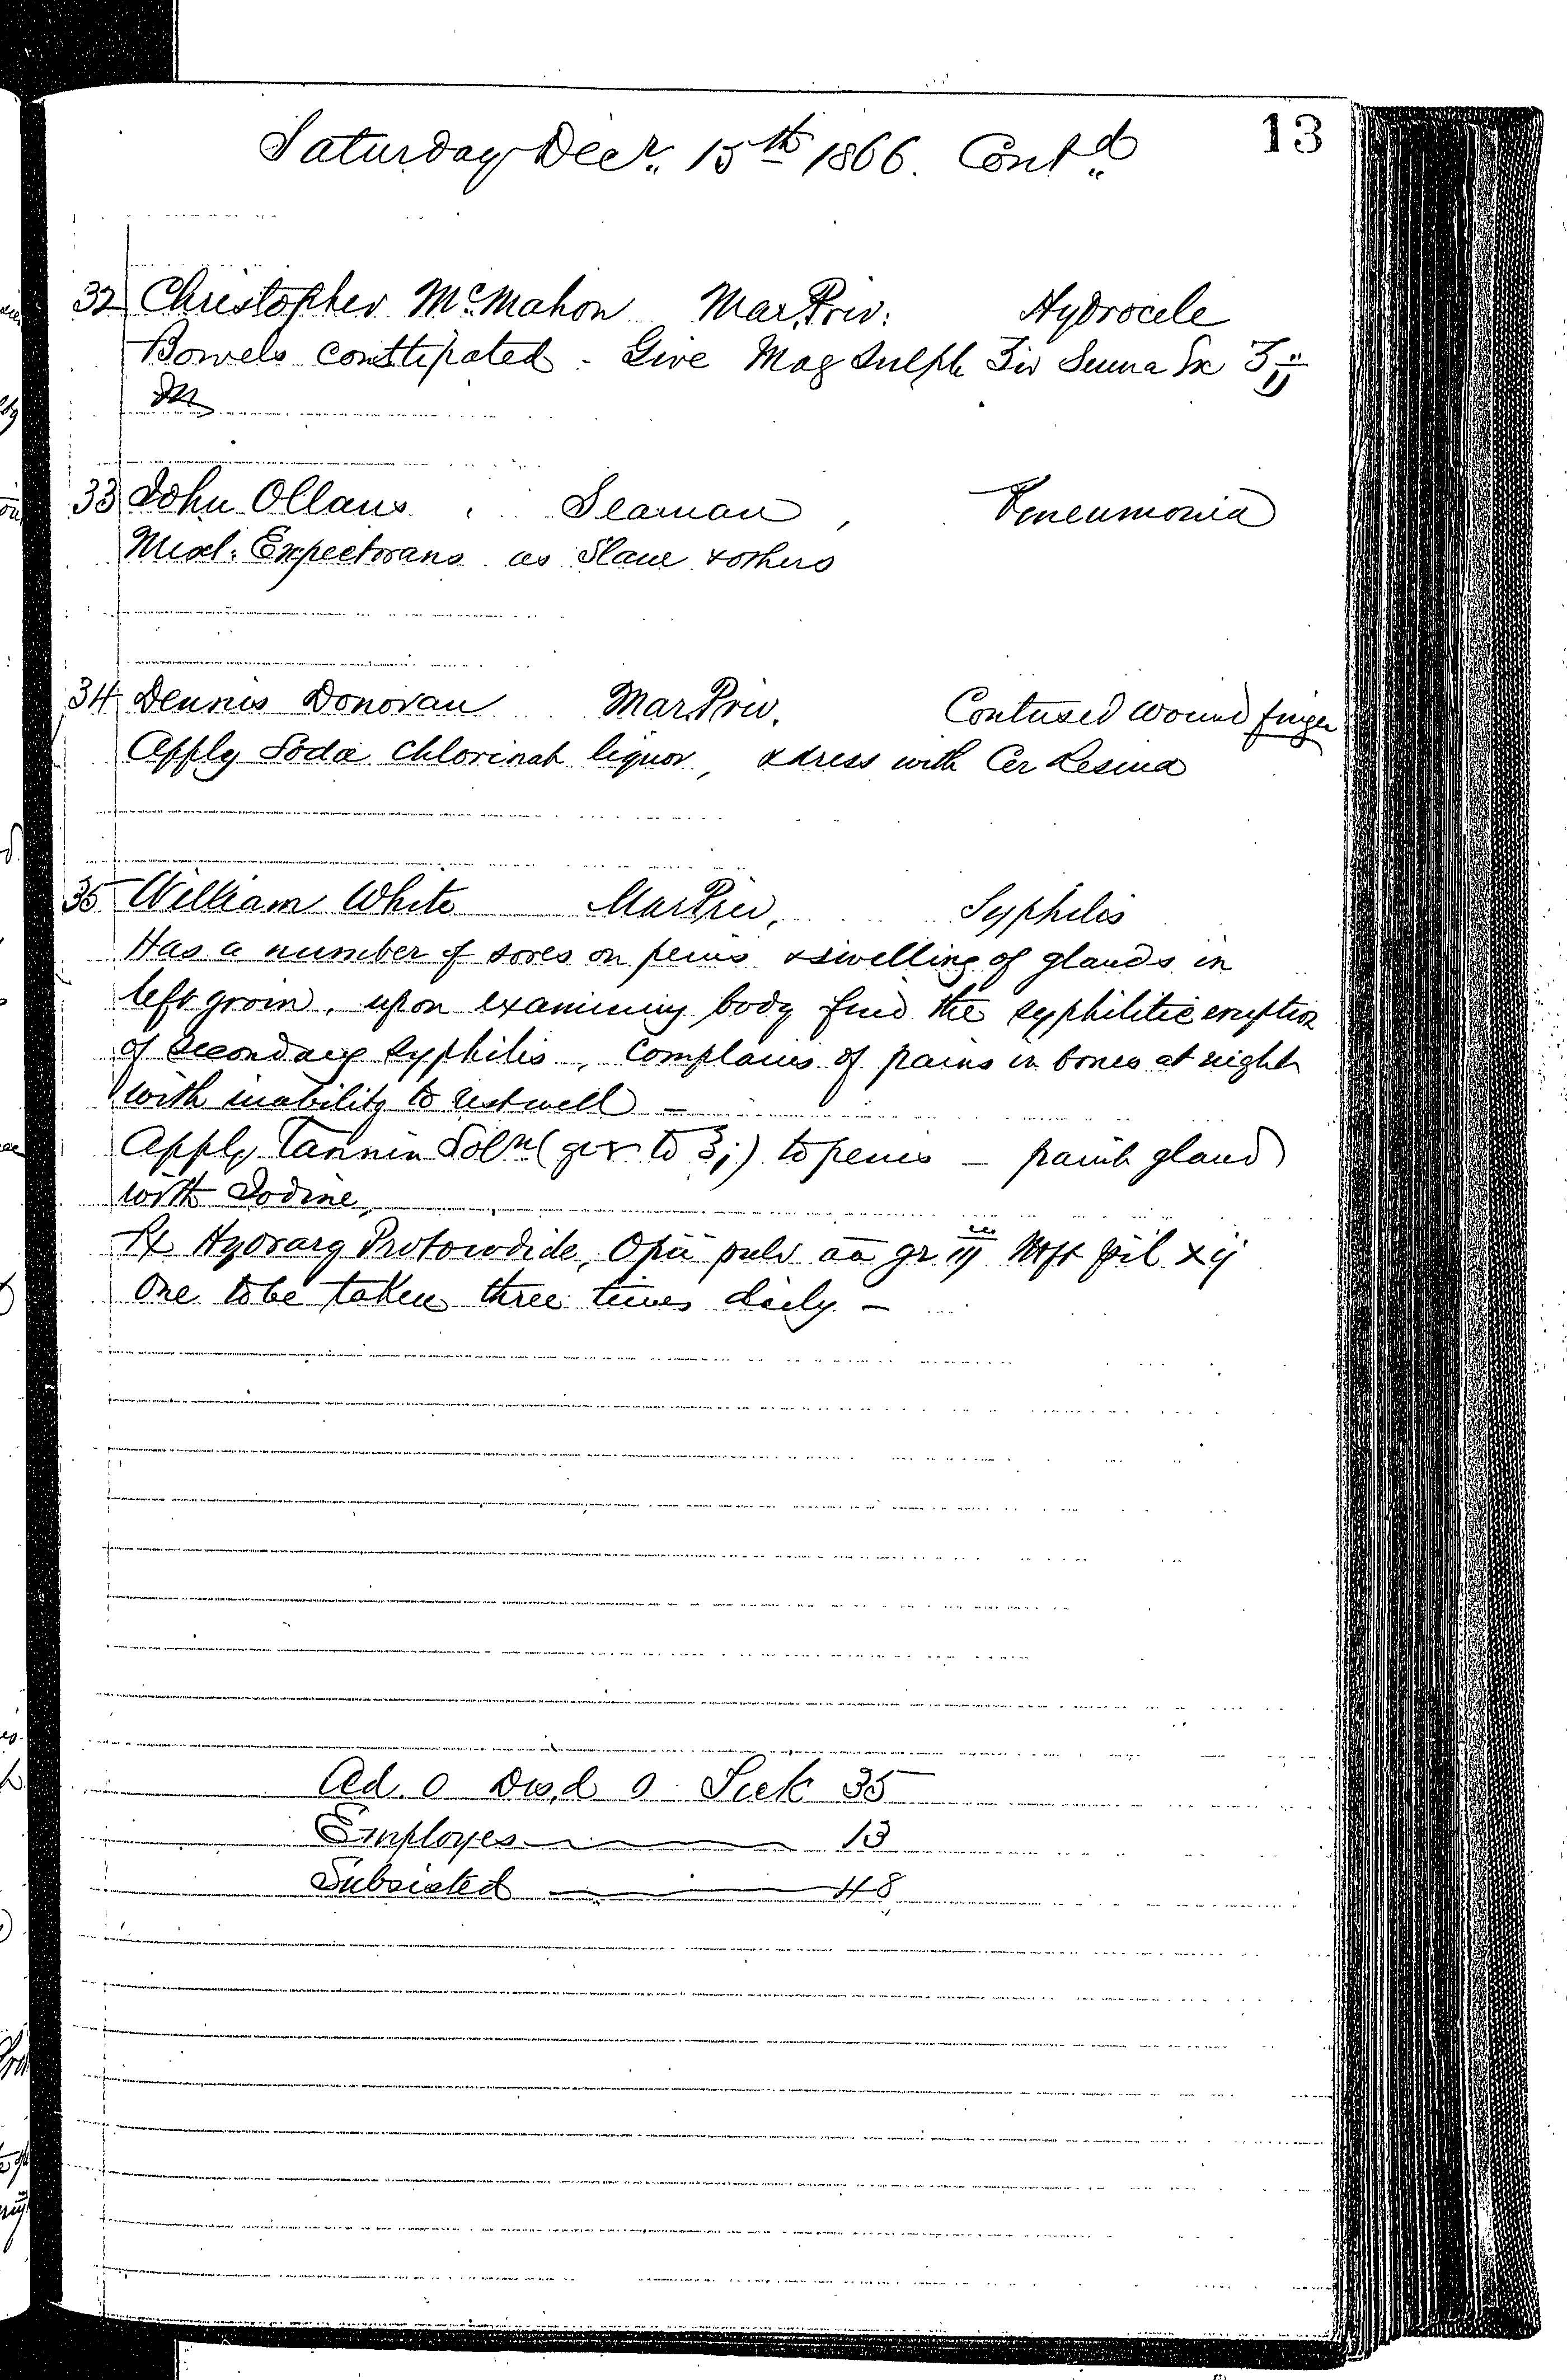 13
Saturday Decr. 15th 1866. Contd
32 Christopher McMahon Mar. Priv. Hydrocele
Bowels consttipated - Give Mag Sulph ʒiv Senna Ex ʒij
33 John Ollaus Seaman, Pneumonia
Mixt. Expectorans as Slane & others
34 Dennis Donovan Mar. Priv. Contused Wound finger
Apply Soda Chlorinat liquor, & dress with Cer Resina
35 William White Mar Priv. Syphilis
Has a number of sores on penis & swelling of glands in
left groin. upon examining body find the syphilitic eruption
of secondary syphilis, complains of pains in bones at night
with inability to rest well —
Apply Tannin Soln (gr x to ℥j) to penis — paint gland
with Iodine,
Rx Hydrarg Protoiodide, Opii pulv aa gr iij Mft pil xij
One to be taken three times daily —
Ad. 0 Dis,d 0 Sick 35
Employes 13
Subsisted 48